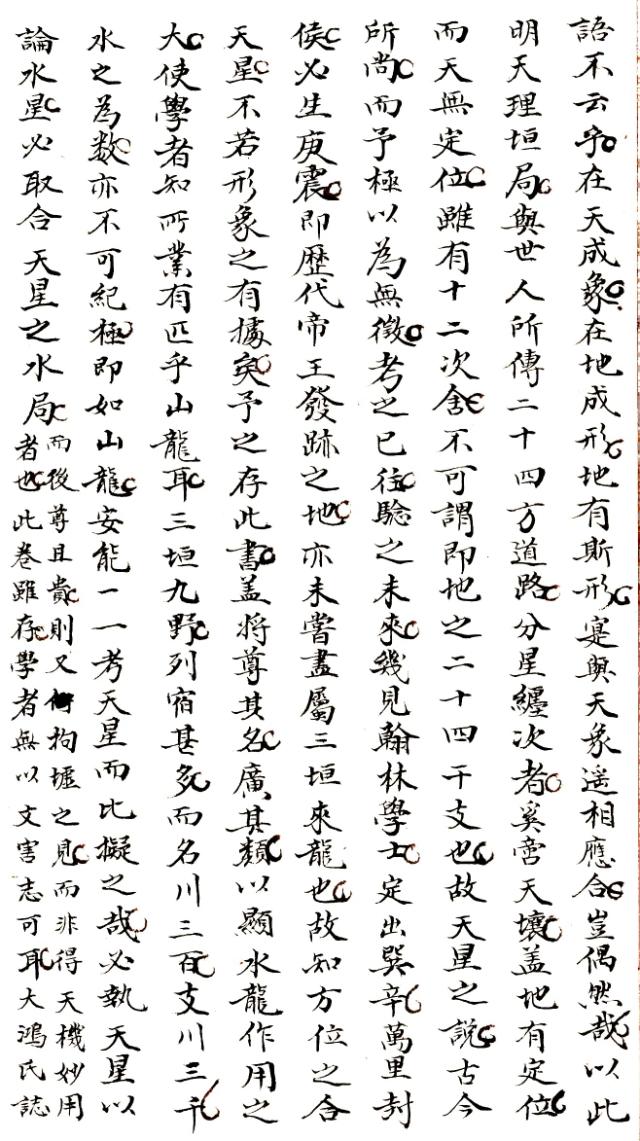 語不云乎在天成象在地成形地有斯形寔與天象遥相應合豈偶然哉以此
明天理垣局與世人所傳二十四方道路分星纏次者奚啻天壤盖地有定位
而天無定位雖有十二次舍不可謂即地之二十四干支也故天星之說古今
所尚而予極以為無徵考之已往驗之未來幾見翰林學士定出巽辛萬里封
侯必生庚震即歷代帝王發跡之地亦未嘗盡屬三垣來龍也故知方位之合
天星不若形象之有據矣予之存此書盖将尊其名廣其類以顯水龍作用之
大使學者知所業有匹乎山龍耳三垣九野列宿甚多而名川三百支川三千
水之為数亦不可紀極即如山龍安能一一考天星而比擬之哉必執天星以
論水星必取合天星之水局
而後尊且貴則又拘墟之見而非得天機妙用
者也此卷雖存學者無以文害志可耳大鴻氏誌